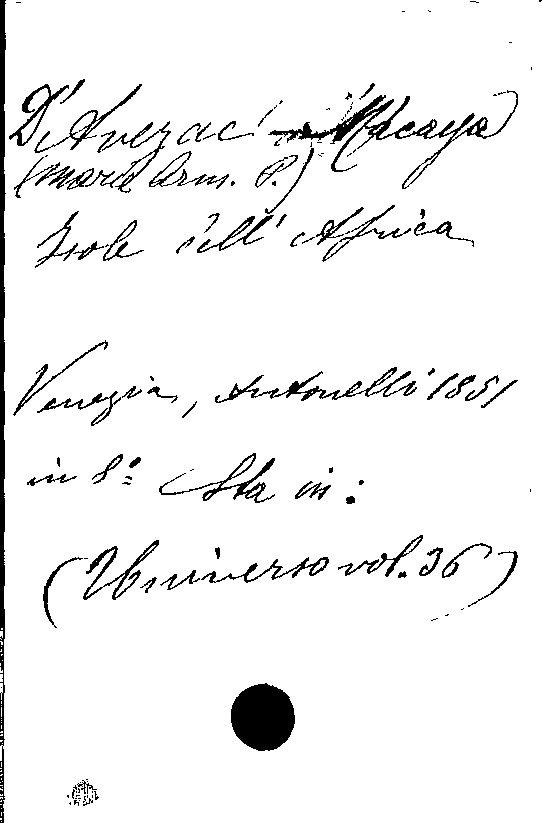 D'Avezac Macaya
(Marie Arm. P.)
Isole dell' Africa
Venezia, Antonelli 1851
in 8º Sta in:
(Universo vol. 36)